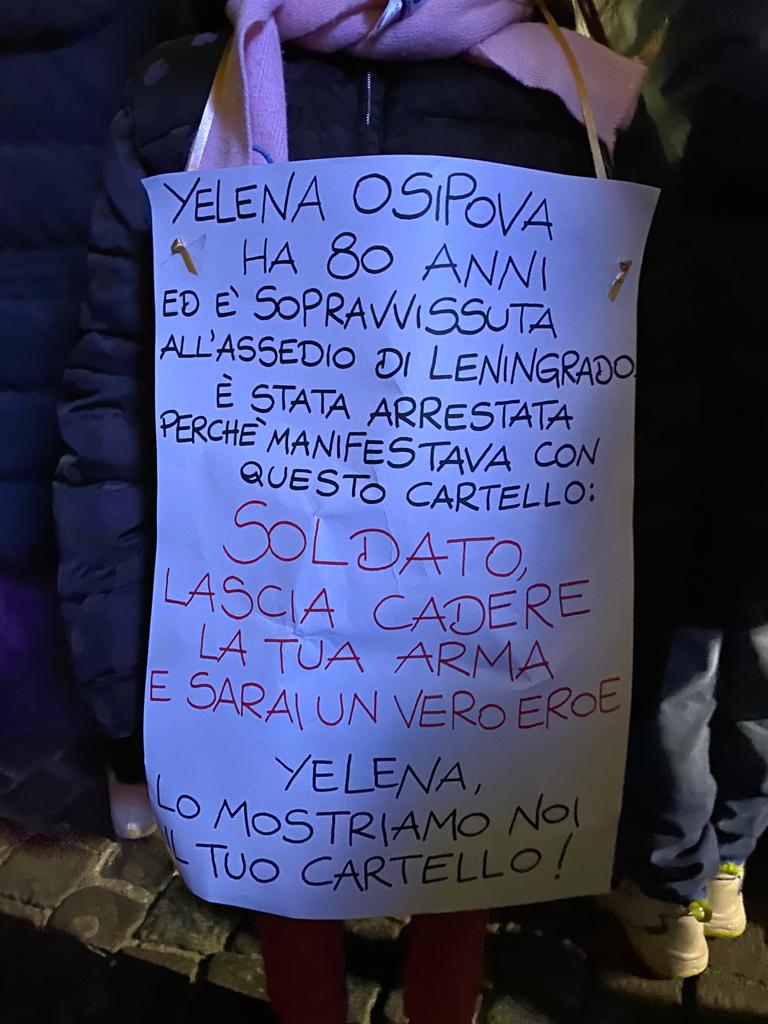 YELENA OSIPOVA
HA 80 ANNI
ED E' SOPRAVVISSUTA
ALL'ASSEDIO DI LENINGRADO.
È STATA ARRESTATA
PERCHE' MANIFESTAVA CON
QUESTO CARTELLO:
SOLDATO,
LASCIA CADERE
LA TUA ARMA
E SARAI UN VERO EROE
YELENA,
LO MOSTRIAMO NOI
IL TUO CARTELLO!